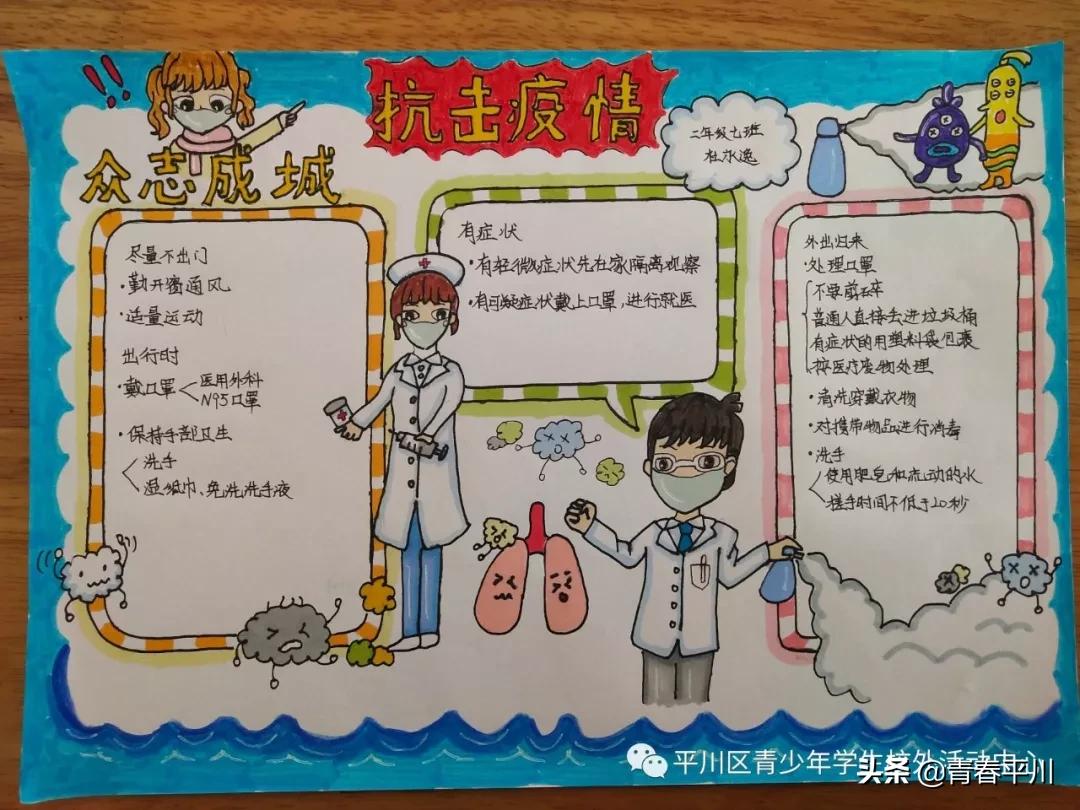 抗击疫情
众志成城
二年级七班
杜水逸
尽量不出门
·勤开窗通风
·适量运动
出行时
·戴口罩
医用外科
N95口罩
·保持手部卫生
洗手
湿纸巾、免洗洗手液
有症状
·有轻微症状先在家隔离观察
·有可疑症状戴上口罩,进行就医
外出归来
·处理口罩
不要剪碎
普通人直接丢进垃圾桶
有症状的用塑料袋包裹
按医疗废物处理
·清洗穿戴衣物
·对携带物品进行消毒
·洗手
使用肥皂和流动的水
搓手时间不低于20秒
平川区青少年学生校外活动中心
头条 @青春平川